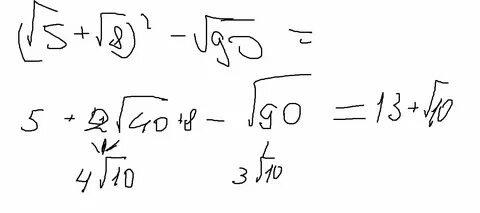 (√5 + √8)² - √90 =
5 + 2√40 + 8 - √90 = 13 + √10
4√10 3√10